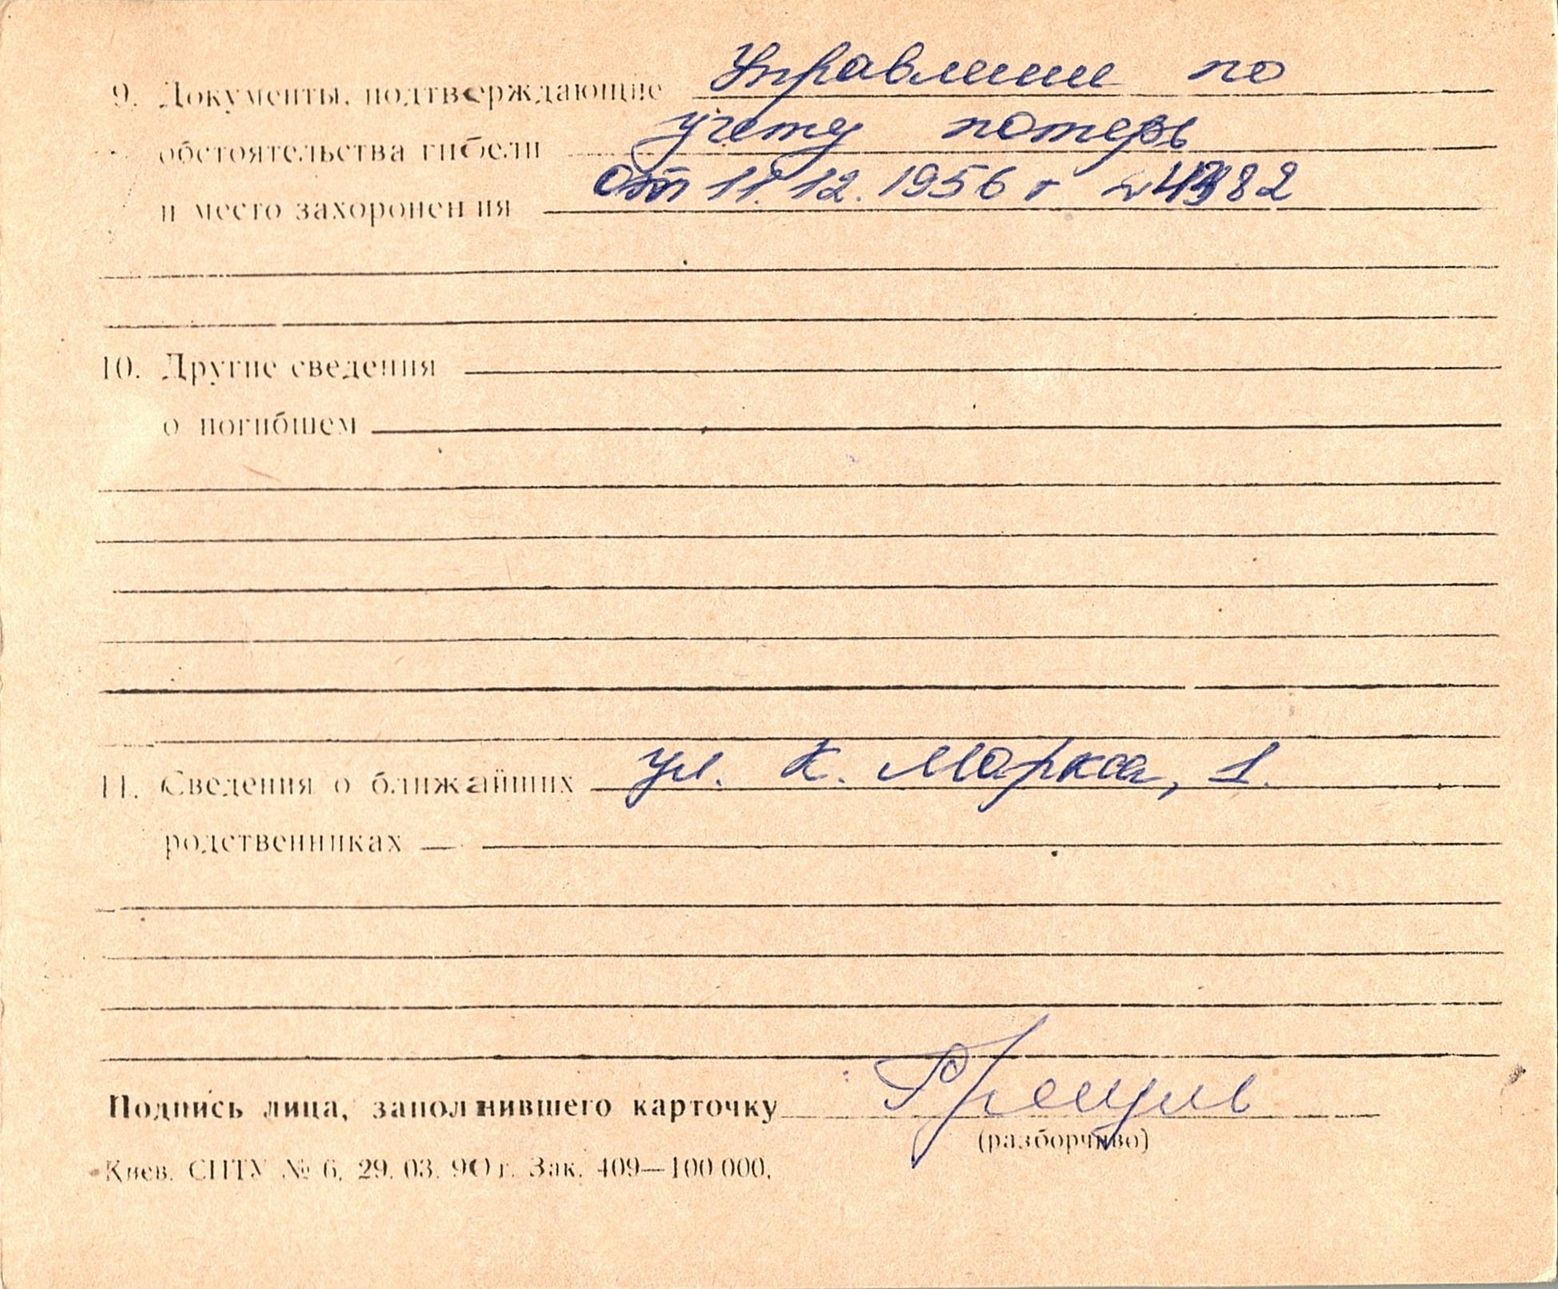 9. Документы, подтверждающие Управление по
обстоятельства гибели учету потерь
и место захоронения от 11.12.1956 г
10. Другие сведения
о погибшем
11. Сведения о ближайших ул. К. Маркса, 1.
родственниках
Подпись лица, заполнившего карточку
(разборчиво)
Киев. СПТУ № 6. 29. 03. 90 г. Зак. 409—100 000.